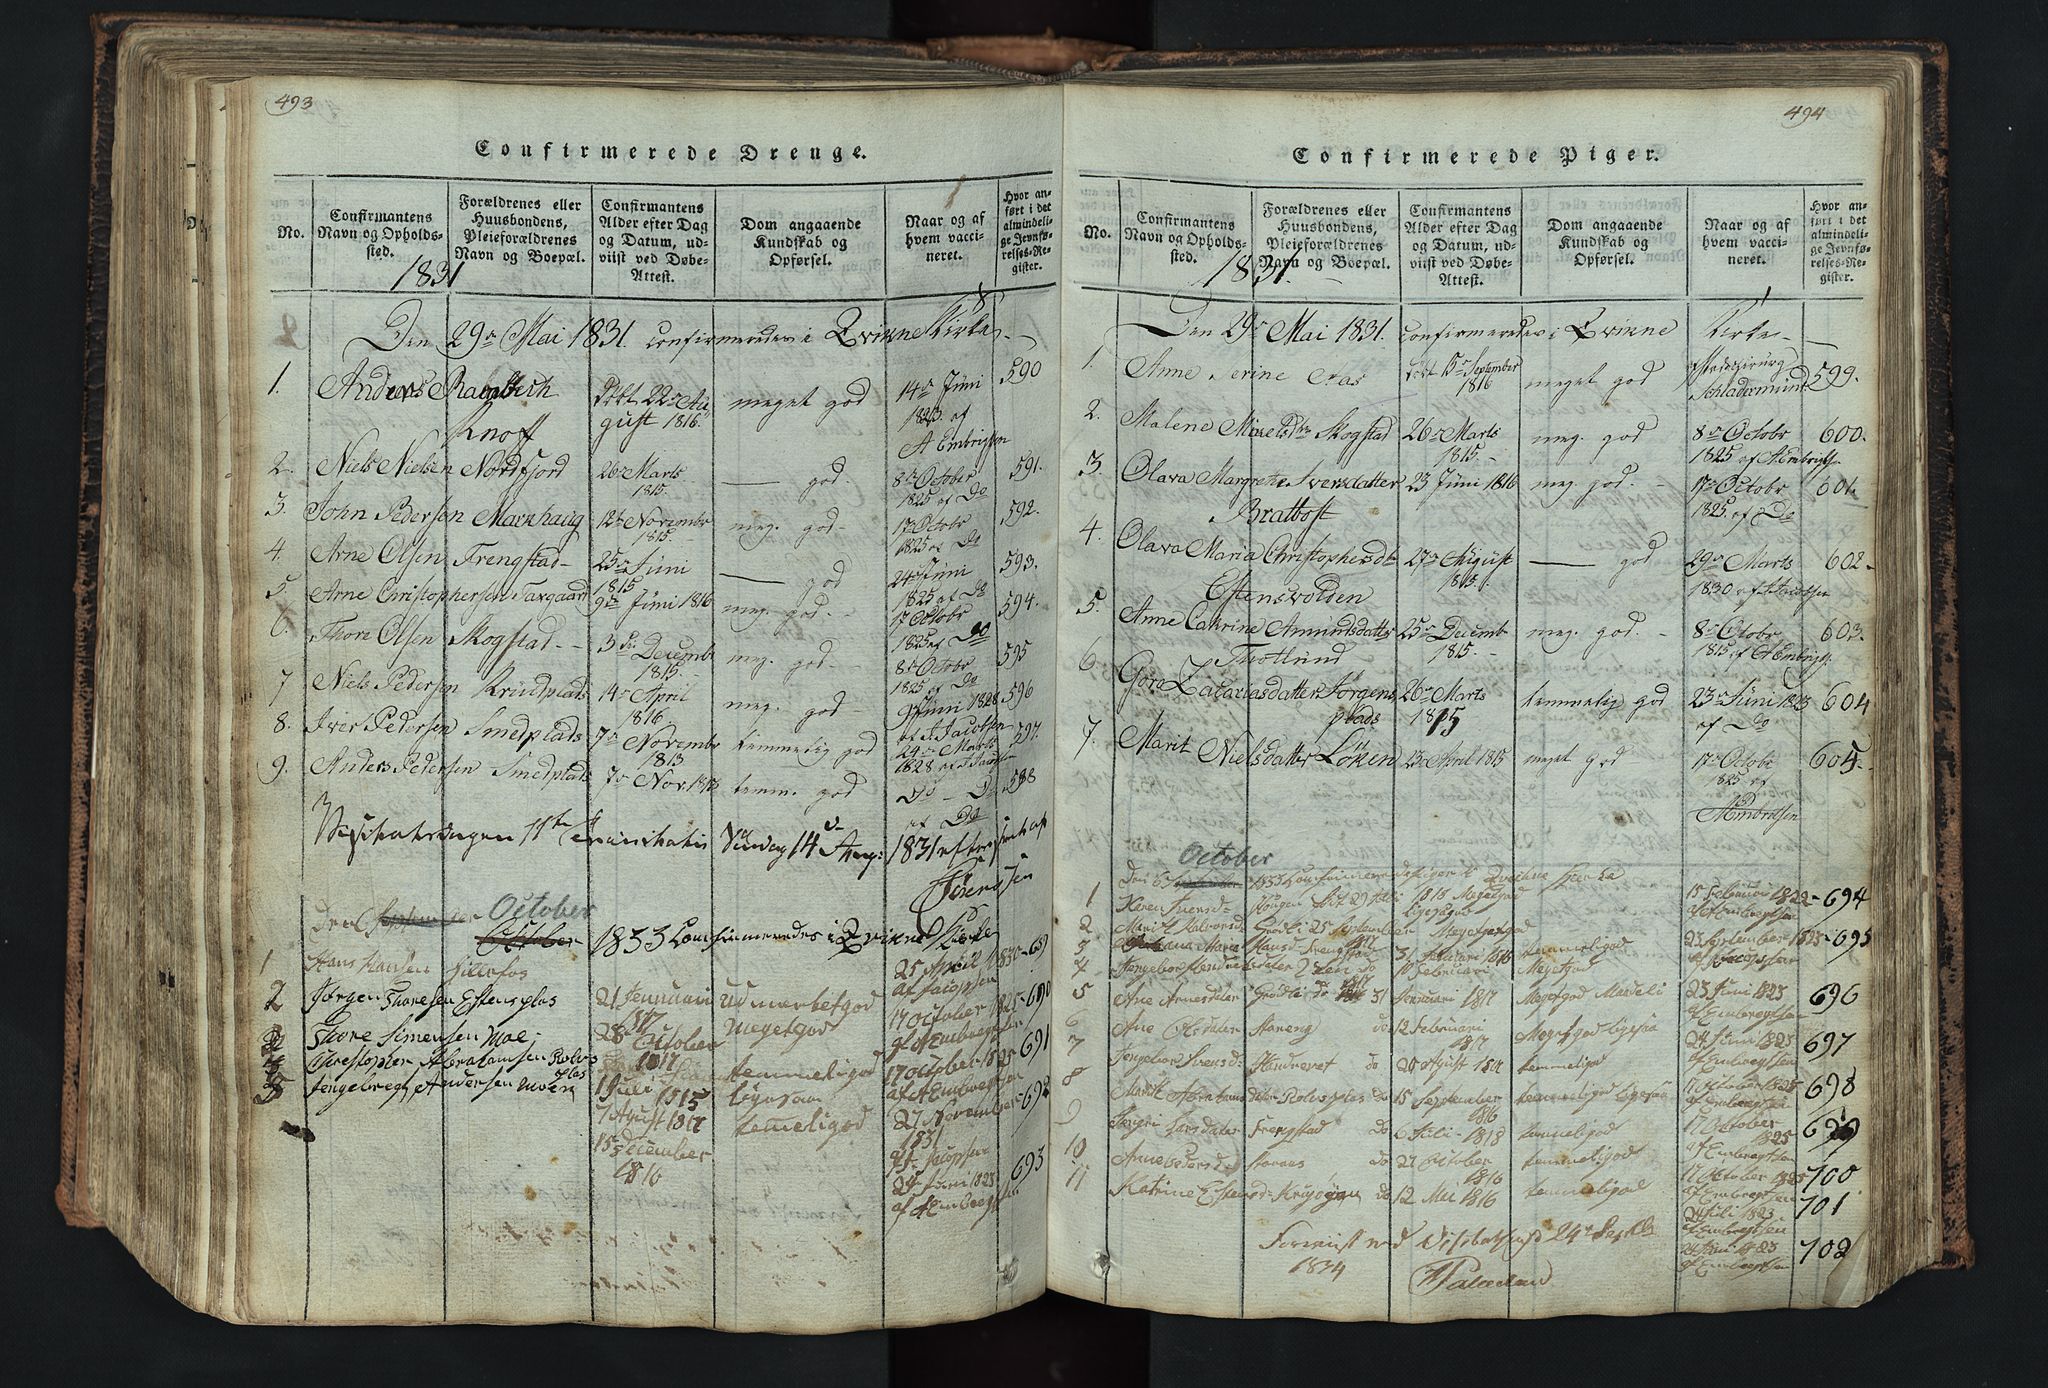 493
Confirmerede Drenge.
No.
Confirmantens Navn og Opholdssted.
Forældrenes eller Huusbondens, Pleieforældrenes Navn og Boepæl.
Confirmantens Alder efter Dag og Datum, udviist ved Døbe-Attest.
Dom angaaende Kundskab og Opførsel.
Naar og af hvem vaccineret.
Hvor anført i det almindelige Jevnførelses-Register.
1831
Den 29de Mai 1831. confirmeredes i Qvinne Kirke
1. Anders Knoff døbt 22de August 1816. meget god 14de Juni 1823 af A Embrigtsen 590
2. Niels Nielsen Nordfjord 26de Marts 1815. — god. 8de October 1825 af Do 591.
3. John Pedersen Marnhaug 12te Novembr 1815. meg. god 17 Octobr 1825 af Do 592.
4. Arne Olsen Frengstad 25de Juni 1815 — god 24de Juni 1825 af Do 593.
5. Arne Christophersen Taxgaard 9de Juni 1816 meg. god. 17 Octobr 1825 af Do 594.
6. Thore Olsen Skogstad 3die Decembr 1815. meg. god 8de Octobr 1825 af Do 595
7 Niels Pedersen Krudplads 14de April 1816 meg. god 9 Juni 1828 af J. Jacobsen 596
8. Iver Pedersen Smedplads 7de Novembr 1813 temmelig god 24de Marts 1828 af J. Jacobsen 597.
9. Anders Pedersen Smedplads 7de Nov. 1813 temm. god Do — Do af Do 598
Visitatsdagen 11te Trinitatis Søndag 14de Aug: 1831 efterseet af
Jørensen
Den 6 October 1833 Comfirmeredes i Qvikne Kierke
1 Hans Hansen 21 Jenuari 1817 udmærketgod 25 April 1830 af Jacopsen 689
2 Jørgen Thoresen Estensplas 28 October 1817 Megetgod 17 October 1825 af A Embregtsen 690
3 Thore Simensen Moe 1 Juli 1815 temmeligod 17 October 1825 af A Embregtsen 691
4 Christopher Abrahamsen Rolvsplas 7 August 1817 Ligesaa 27 November 1831 af Jacopsen 692
5 Ingebregt Andersen Moen 15 December 1816 temeligod 24 Juni 1823 af A Embregtsen 693
494
Confirmerede Piger.
No.
Confirmantens Navn og Opholdssted.
Forældrenes eller Huusbondens, Pleieforældrenes Navn og Boepæl.
Confirmantens Alder efter Dag og Datum, udviist ved Døbe-Attest.
Dom angaaende Kundskab og Opførsel.
Naar og af hvem vaccineret.
Hvor anført i det almindelige Jevnførelses-Register.
1831.
Den 29de Mai 1831. confirmeredes i Qvinne Kirke
1. Anne Serine Aas døbt 15de September 1816 meget god 599.
2. Malene Mikelsdtr Skogstad 26de Marts 1815. meg. god 8de Octobr 1825 af A Embrigts. 600.
3. Olava Margrethe Iversdatter Brattbost 23 Juni 1816 meg. god. 17de Octobr 1825. af Do 601.
4. Olava Maria Christophersdtr Estensvolden 27de August 1815. — god 29de Marts 1830 af J. Jacobsen 602
5. Anne Catrine Amundsdatter 25de Decembr 1815 meg. god. 8de Octobr 1815 af A Embrigts. 603.
6 Goro Zacariasdatter Jørgensplads 26de Marts 1815 temmelig god 23de Juni 1823 af Do 604
7. Marit Nielsdatter Löken 23de April 1815 meget god 17de Octobr 1825 af A Embrigtsen 605.
October
Den 6 1833 Comfirmeredes Piger i Qveikne Kierke
1 Karen Iversd. Hougen 29 Juli 1818 Megetgod 15 Februari 1822 af A Embregtsen 694
2 Marit Halvorsd. Grødli 25 September 1817 Megetgod 23 September 1823 af Jacopsen 695
3 Maria Hansd. Frengstad 31 Januari 1816 temmeligod
4 Ingebor Hendricsdater do 10 Februari 1817 Megetgod
5 Ane Arnesdater Grødli do 31 Januari 1817 Megetgod 23 Juni 1823 af Embregtsen 696
6 Ane Olsdater Storeng do 12 Februari 1817 Megetgod Ligesaa 24 Juni 1825 af Embregtsen 697
7 Ingebor Svensd. do 20 August temmeligod 17 October 1825 af Embregtsen 698
8 Marit Abrahams dater Rolvsplas do 15 September 1816 temmeligod Ligesaa 17 October 1825 af Embregtsen 699
9 Ingri Larsdater Frengstad do 6 Juli 1818 temmeligod 17 October 1825 af Embregtsen 700
10 Anne Pedersd. do 27 October 1816 temmeligod 24 Juli 1823 af Embregtsen 701
11 Katrine Estensd. do 12 Mai 1816 temmeligod 24 Juni 1823 af Embregtsen 702
Foreviist ved Visitatsen d 24de Septbr
1834